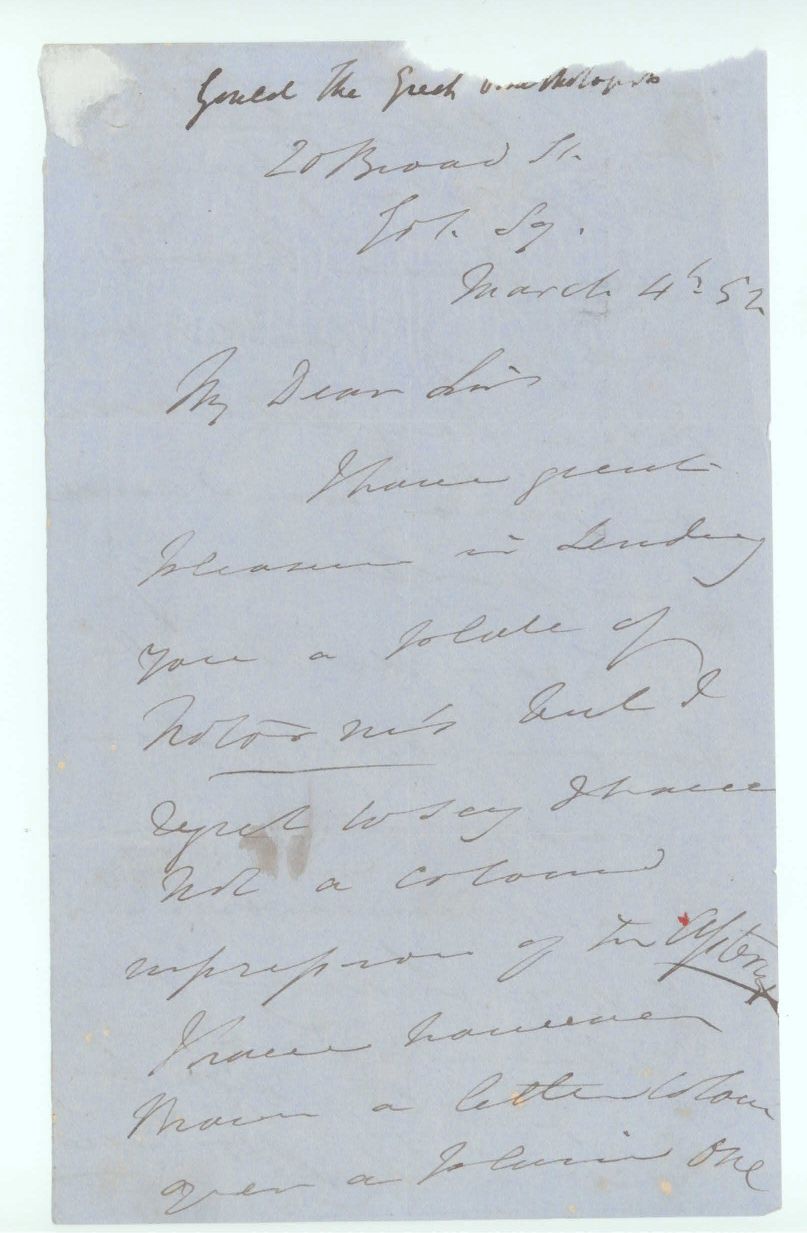 Gould The Great Ornithologist
20 Broad St.
Gol. Sq.
March 4th 52
My Dear Sir
I have great
pleasure in sending
you a plate of
Notornis but I
regret to say I have
not a coloured
impression of the Apteryx
I have however
thrown a little colour
over a plain one